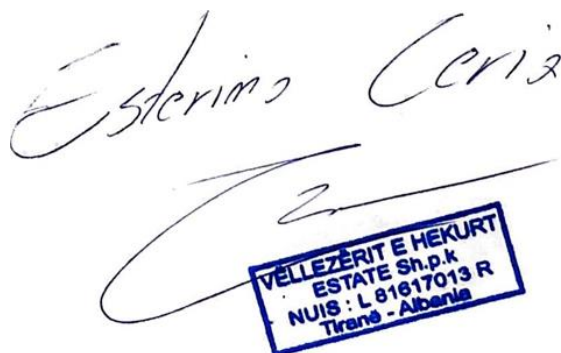 Esterino Ceria
VËLLEZËRIT E HEKURT
ESTATE Sh.p.k
NUIS : L 81617013 R
Tiranë - Albania